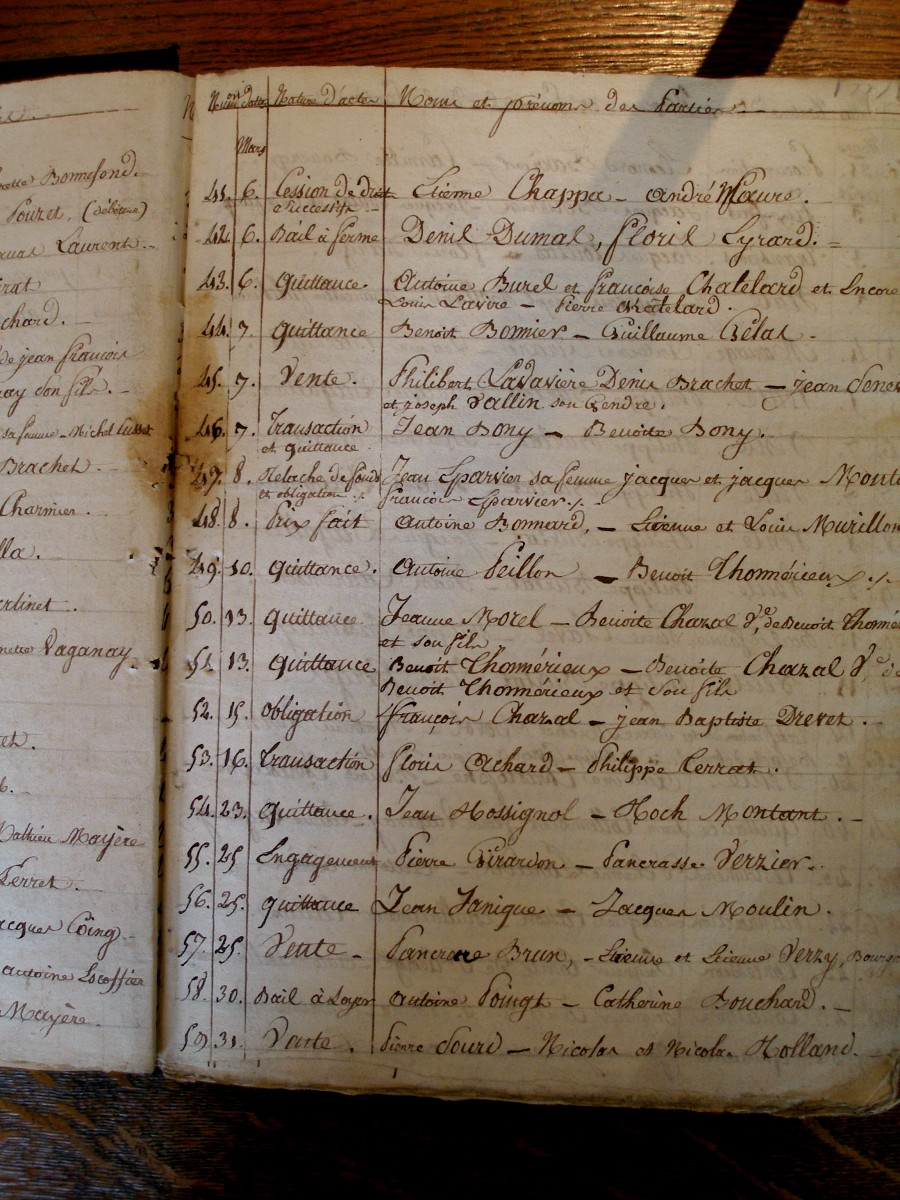 Bonnefond.
Pouzet, (débiteur)
Laurent.
chard.
de jean françois
son fils.
sa femme - Michel
Brachet.
Charmier.
lla.
ertinet.
Paganay
et.
Mathieu Mayère
Ferret.
acques Coing
antoine Escoffier
Mayère.
Num.on dattes Nature d'actes Noms et prénoms des Parties
Mars
41. 6. Cession de droit Etienne Chappa - André
e Successifs
42. 6. Bail à ferme Denis Dumas, floris Eyrard.
43. 6. Quittance Antoine Burel et françoise Chatelard et Encore
Louis Lavire - Pierre Chatelard.
44. 7. Quittance Benoit Bonnier - Guillaume Gélas.
45. 7. Vente. Philibert Ladavière Denis Brachet - jean
et joseph Vallin son Gendre.
46. 7. Transaction Jean Bony - Benoite Bony.
et quittance
47. 8. Relache de fonds Jean Eparvier sa femme jacques et jacques
et obligation françois Eparvier
48. 8. Prix fait Antoine Bonnard, - Etienne et Louis Murillon
49. 10. Quittance. Antoine Peillon - Benoit Thonnérieux
50. 13. Quittance Jeanne Morel - Benoite Chazal V.e de Benoit
et son fils
51. 13. Quittance Benoit Thonnérieux - Benoite Chazal V.e de
Benoit Thonnérieux et son fils
52. 15. Obligation françois Chazal - jean Baptiste Drevet.
53. 16. Transaction floris Achard - Philippe Perrat.
54. 23. Quittance. Jean Rossignol - Roch Montant.
55. 25 Engagement Pierre Girardon - Pancrasse Verzier.
56. 25. quittance Jean Janique - Jacques Moulin.
57. 25. Vente - Pancrace Brun, - Etienne et Etienne Verzy,
58. 30. Bail à Loyer Antoine Poingt - Catherine Bouchard.
59. 31. Vente. Pierre Sourd - Nicolas et Nicolas Rolland.